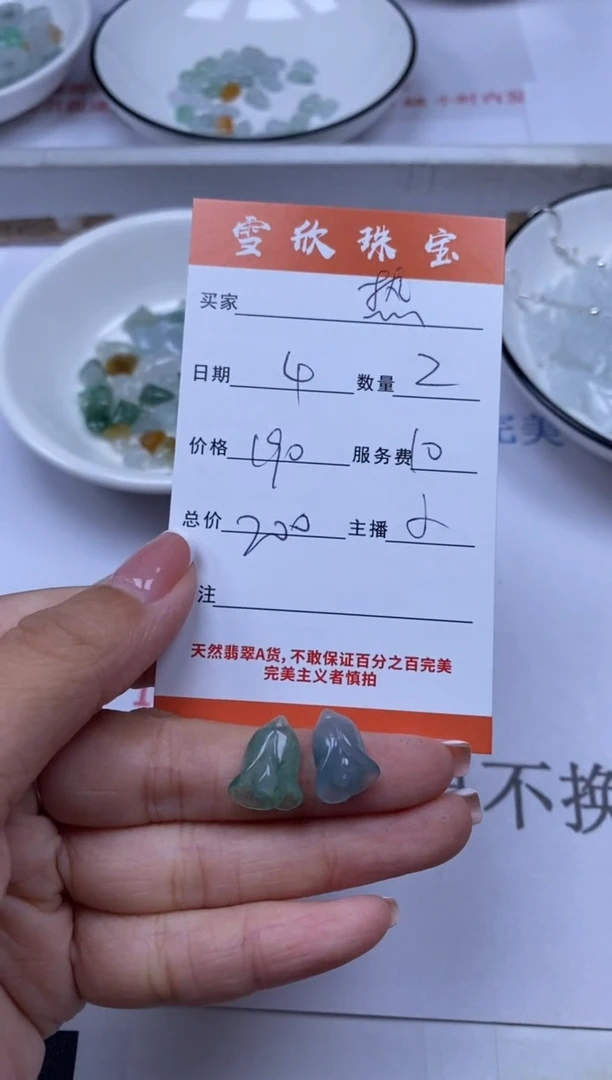 小时内发
雪欣珠宝
买家 热
日期 4 数量 2
完美
价格 190 服务费 10
总价 200 主播
注
天然翡翠A货,不敢保证百分之百完美
完美主义者慎拍
不换